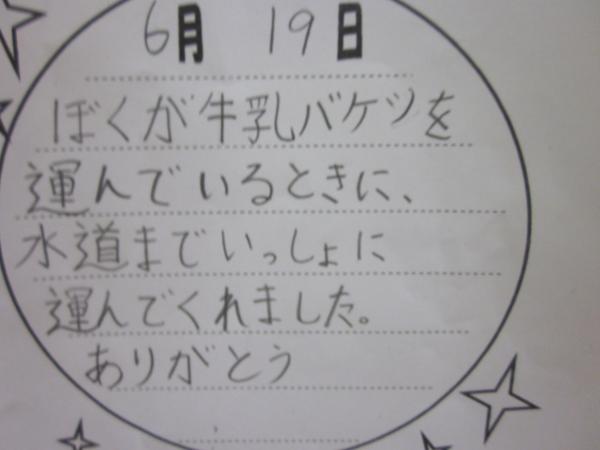 6月 19日
ぼくが牛乳バケツを
運んでいるときに、
水道までいっしょに
運んでくれました。
ありがとう